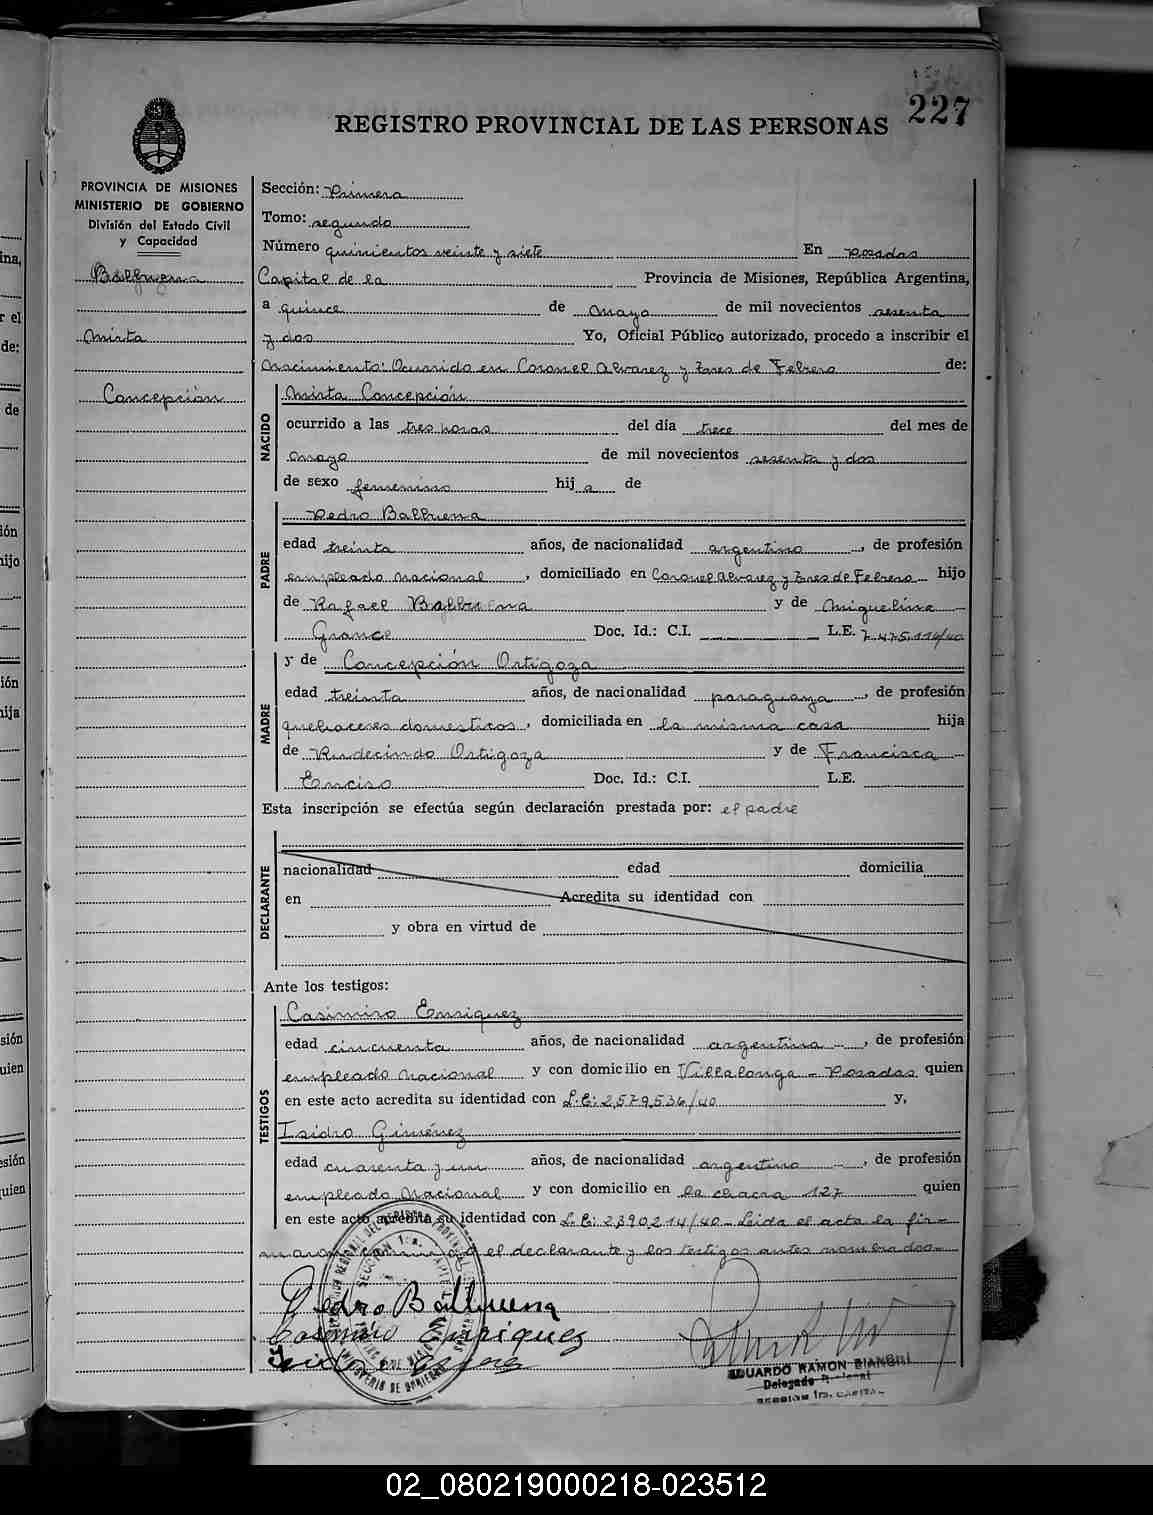 227
REGISTRO PROVINCIAL DE LAS PERSONAS
PROVINCIA DE MISIONES
MINISTERIO DE GOBIERNO
División del Estado Civil
y Capacidad
Balbuena
Mirta
Concepción
Sección: Primera
Tomo: segundo
Número quinientos veinte y siete En Posadas
Capital de la Provincia de Misiones, República Argentina,
a quince de Mayo de mil novecientos sesenta
y dos Yo, Oficial Público autorizado, procedo a inscribir el
Nacimiento: Ocurrido en Coronel Alvarez y Tres de Febrero de:
NACIDO
Mirta Concepción
ocurrido a las tres horas del día trece del mes de
Mayo de mil novecientos sesenta y dos
de sexo femenino hij a de
PADRE
Pedro Balbuena
edad treinta años, de nacionalidad argentino, de profesión
empleado Nacional, domiciliado en Coronel Alvarez y Tres de Febrero hijo
de Rafael Balbuena y de Miguelina
Grance Doc. Id.: C.I. L.E. 7.475.114/40
MADRE
y de Concepción Ortigoza
edad treinta años, de nacionalidad paraguaya, de profesión
quehaceres domesticos, domiciliada en la misma casa hija
de Rudecindo Ortigoza y de Francisca
Enciso Doc. Id.: C.I. L.E.
Esta inscripción se efectúa según declaración prestada por: el padre
DECLARANTE
nacionalidad edad domicilia
en Acredita su identidad con
y obra en virtud de
Ante los testigos:
TESTIGOS
Casimiro Enriquez
edad cincuenta años, de nacionalidad argentina, de profesión
empleado Nacional y con domicilio en Villalonga - Posadas quien
en este acto acredita su identidad con L.E: 2,579,536/40 y,
Isidro Giménez
edad cuarenta y un años, de nacionalidad argentino, de profesión
empleado Nacional y con domicilio en la chacra 127 quien
en este acto acredita su identidad con L.E: 2390214/40 - Leida el acta la fir-
el declarante y los testigos antes nombrados-
Pedro Balbuena
Casimiro Enriquez
EDUARDO RAMON BIANCHI
Delegado
SECCION 1ra. CAPITAL
02_080219000218-023512